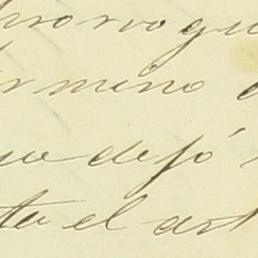 prorogu
érmino
ue dejó
ta el art